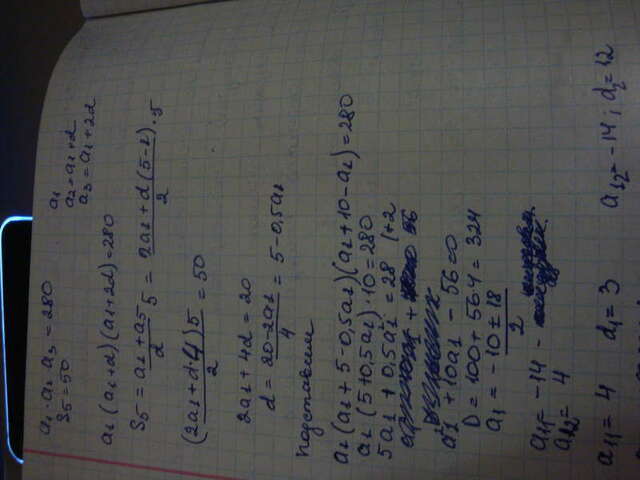 a₁ · a₂ a₃ = 280
S₅ = 50
a₁
a₂ = a₁ + d
a₃ = a₁ + 2d
a₁ (a₁ + d) (a₁ + 2d) = 280
S₅ = a₁ + a₅ / 2 5 = 2a₁ + d (5 - 1) / 2 · 5
(2a₁ + d · 4) 5 / 2 = 50
2a₁ + 4d = 20
d = 20 - 2a₁ / 4 = 5 - 0,5a₁
подставим
a₁ (a₁ + 5 - 0,5a₁) (a₁ + 10 - a₁) = 280
a₁ (5 + 0,5a₁) · 10 = 280
5a₁ + 0,5a₁² = 28 | · 2
a₁² + 10a₁ - 56 = 0
D = 100 + 56 4 = 324
a₁ = -10 ± 18 / 2
a₁₁ = -14 -
a₁₂ = 4
a₁₁ = 4 d₁ = 3 a₁₂ = -14; d₂ = 12